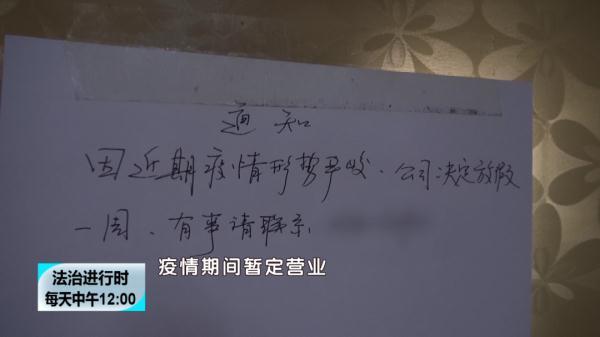 通知
因近期疫情形势严峻、公司决定放假
一周、有事请联系
疫情期间暂定营业
法治进行时
每天中午12:00